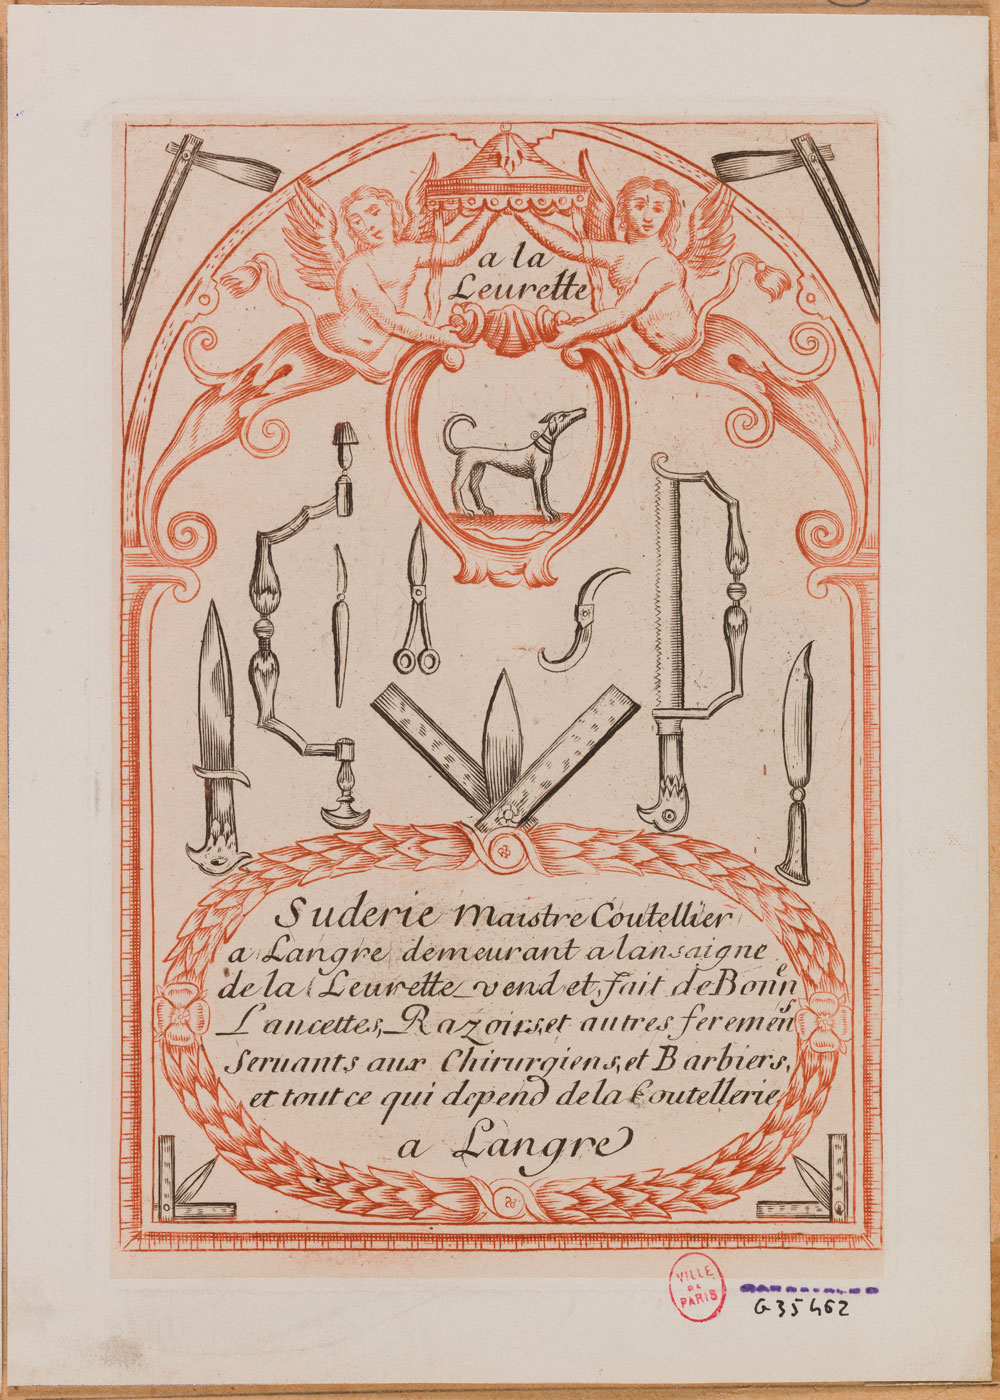 a la
Leurette
Suderie Maistre Coutellier
a Langre demeurant a lansaigne
de la Leurette vend et fait de Bonnes
Lancettes, Razoirs, et autres feremens
Seruants aux Chirurgiens, et Barbiers,
et tout ce qui depend de la Coutellerie
a Langre
VILLE
DE
PARIS
G 35462